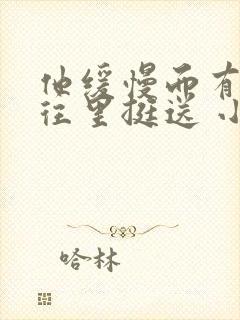 他缓慢而有
往里挺送 小
哈林